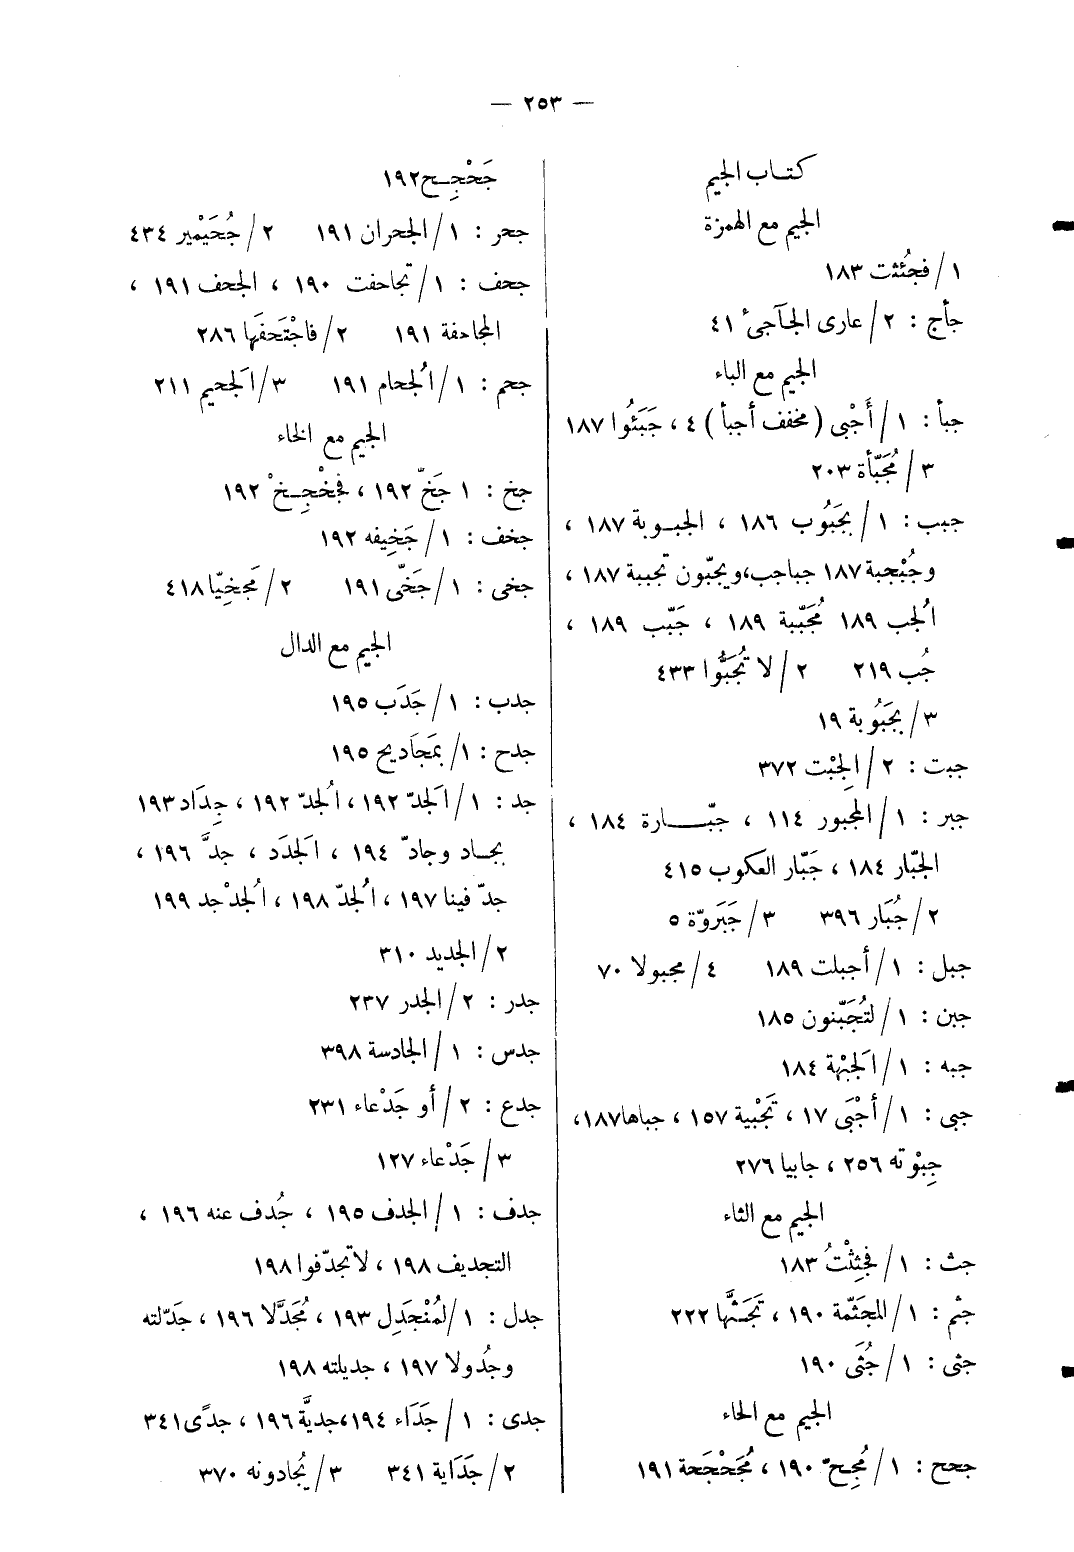 — ٢٥٣ —
كتاب الجيم
الجيم مع الهمزة
١/فجُئثت ١٨٣
جأج : ٢/عارى الجآجئ ٤١
الجيم مع الباء
جبأ : ١/أَجْبى (مخفف أجبأ) ٤ ، جَبَئُوا ١٨٧
٣/مُجَبّأة ٢٠٣
جبب : ١/بجَبُوب ١٨٦ ، الجبوبة ١٨٧ ،
وجُبْجبة ١٨٧ جباجب، ويجبّون تجببة ١٨٧ ،
الُجب ١٨٩ مُجَبّبة ١٨٩ ، جَبّب ١٨٩ ،
جُب ٢١٩ ٢/لا تُجَبُّوا ٤٣٣
٣/بجَبُوبة ١٩
جبت : ٢/الجِبْت ٣٧٢
جبر : ١/المجبور ١١٤ ، جبّارة ١٨٤ ،
الجبّار ١٨٤ ، جَبّار العكوب ٤١٥
٢/جُبَار ٣٩٦ ٣/جَبَروّة ٥
جبل : ١/أجبلت ١٨٩ ٤/مجبولا ٧٠
جبن : ١/لتُجَبّنون ١٨٥
جبه : ١/الَجبْهة ١٨٤
جبى : ١/أجْبَى ١٧ ، تَجْبية ١٥٧ ، جباها ١٨٧،
جِبْوْته ٢٥٦ ، جابيا ٢٧٦
الجيم مع الثاء
جث : ١/فجُثِثْتُ ١٨٣
جثم : ١/المجَثّمة ١٩٠ ، تَجَثَّمها ٢٢٢
جثى : ١/جُثَى ١٩٠
الجيم مع الحاء
جحح : ١/مُجِحّ ١٩٠ ، مُجَحْجَحة ١٩١
جَحْجِح ١٩٢
جحر : ١/الجحران ١٩١ ٢/جُحَيْمير ٤٣٤
جحف : ١/تجاحفت ١٩٠ ، الجحف ١٩١ ،
المجاحفة ١٩١ ٢/فاجْتَحفَها ٢٨٦
جحم : ١/الُجحام ١٩١ ٣/الَجحيم ٢١١
الجيم مع الخاء
جخ : ١ جَخّ ١٩٢ ، فجَخْجِخْ ١٩٢
جخف : ١/جَخيفه ١٩٢
جخى : ١/جَخّى ١٩١ ٢/مَجخيّا ٤١٨
الجيم مع الدال
جدب : ١/جَدَب ١٩٥
جدح : ١/بمَجَاديح ١٩٥
جد : ١/الَجدّ ١٩٢ ، الُجدّ ١٩٢ ، جِدَاد ١٩٣
بجاد وجادّ ١٩٤ ، الَجدَد ، جدَّ ١٩٦ ،
جدّ فينا ١٩٧ ، الُجدّ ١٩٨ ، الُجدْجد ١٩٩
٢/الجديد ٣١٠
جدر : ٢/الجدر ٢٣٧
جدس : ١/الجادسة ٣٩٨
جدع : ٢/أو جَدْعاء ٢٣١
٣/جَدْعاء ١٢٧
جدف : ١/الجدف ١٩٥ ، جُدف عنه ١٩٦ ،
التجديف ١٩٨ ، لا تجدّفوا ١٩٨
جدل : ١/لمُنْجَدِل ١٩٣ ، مُجَدَّلا ١٩٦ ، جَدّلته
وجُدولا ١٩٧ ، جديلته ١٩٨
جدى : ١/جَدَاء ١٩٤، جديَّة ١٩٦ ، جدًى ٣٤١
٢/جَدَاية ٣٤١ ٣/يُجادونه ٣٧٠